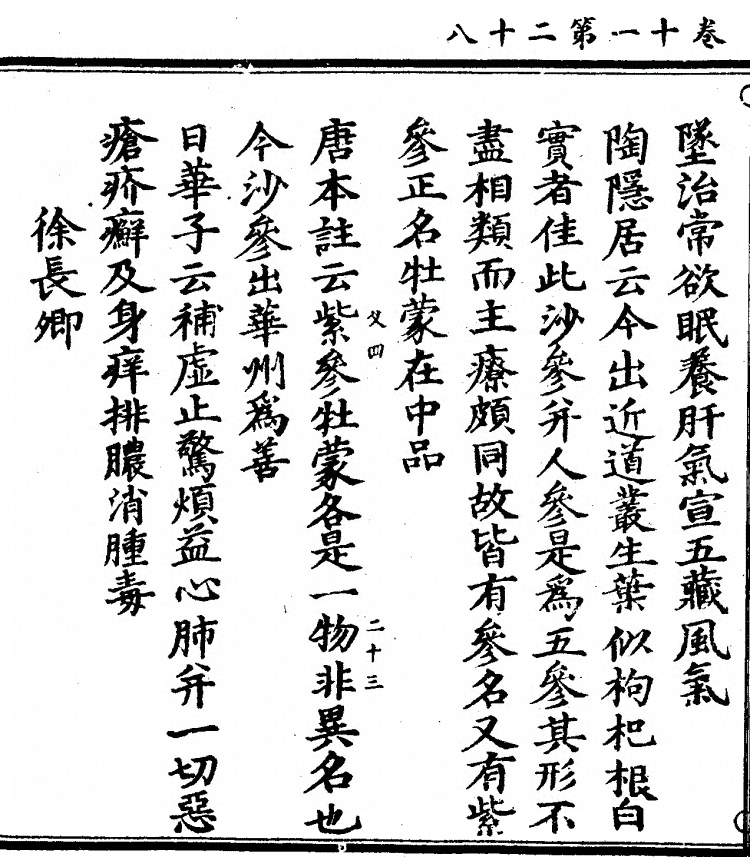 卷十一第二十八
墜治常欲眠養肝氣宣五藏風氣
陶隱居云今出近道叢生葉似枸杞根白
實者佳此沙參并人參是爲五參其形不
盡相類而主療頗同故皆有參名又有紫
參正名牡蒙在中品
父四
二十三
唐本註云紫參牡蒙各是一物非異名也
今沙參出華州爲善
日華子云補虛止驚煩益心肺并一切惡
瘡疥癬及身痒排膿消腫毒
徐長卿